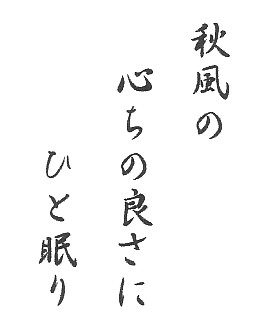 秋風の
心ちの良さに
ひと眠り